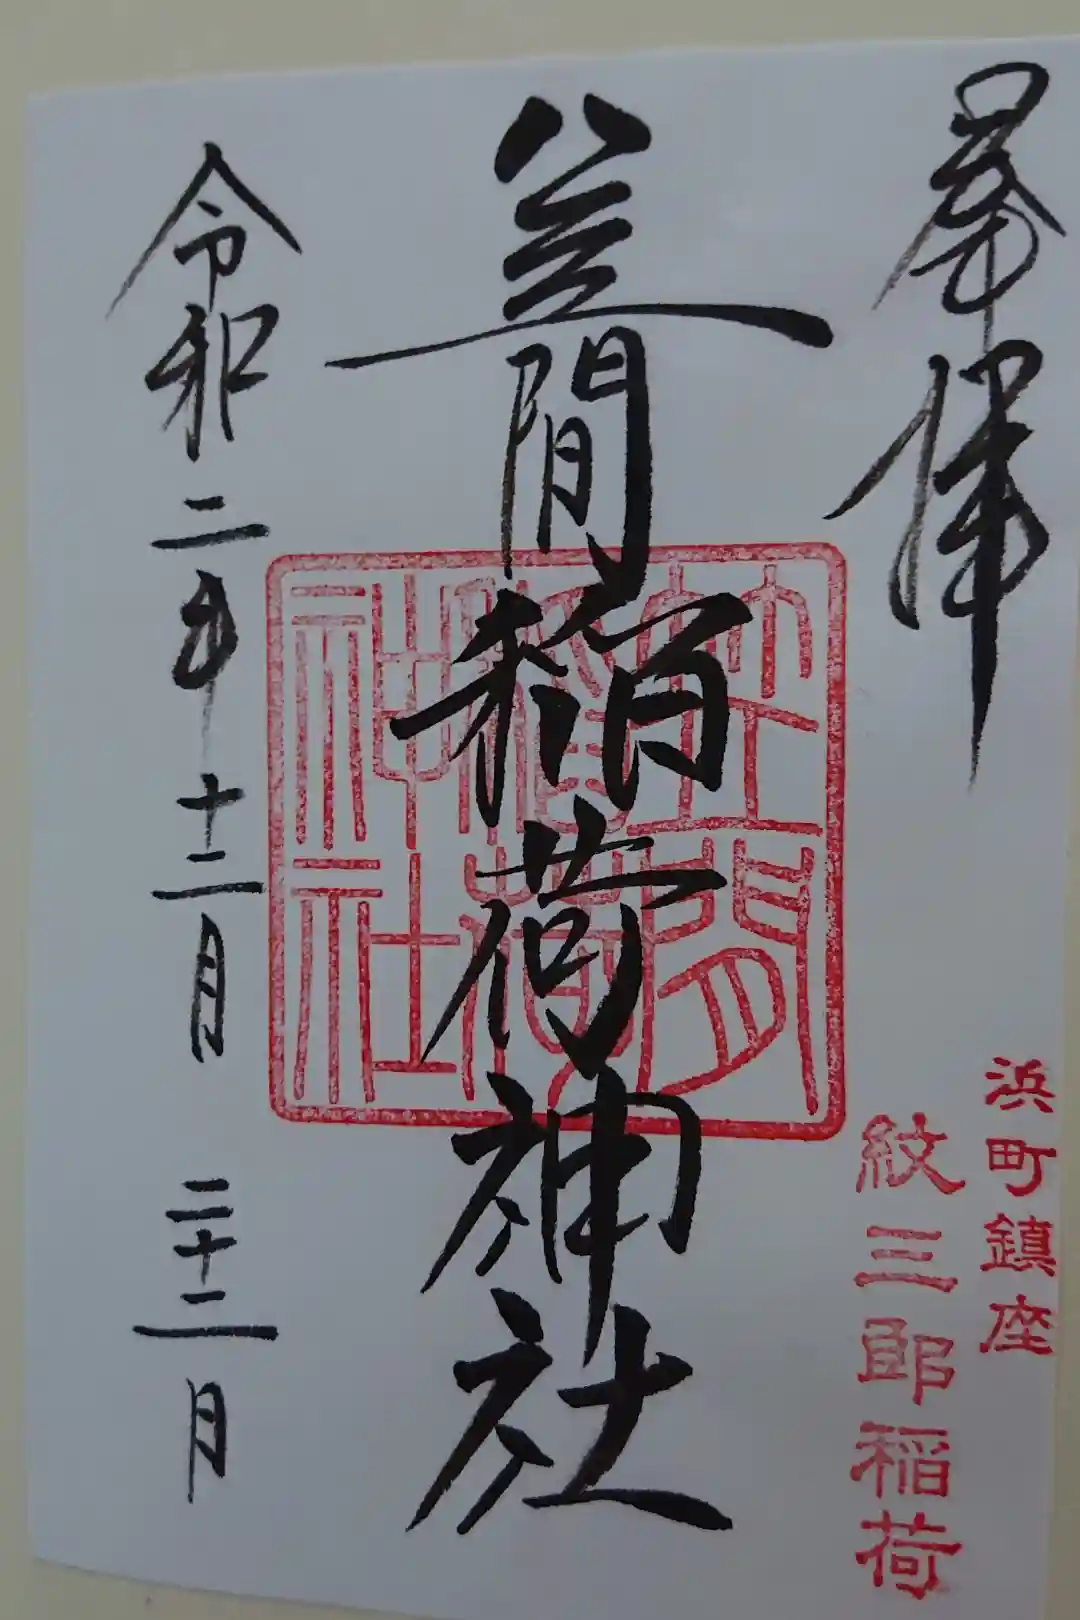 奉拝
浜町鎮座
紋三郎稲荷
笠間稲荷神社
笠間
稲荷
神社
令和二年十二月二十二月